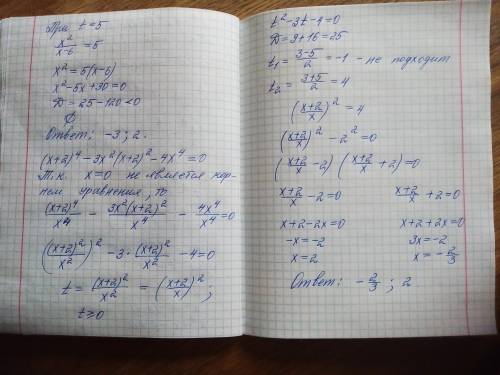 При t=5
x²/(x-6) = 5
x² = 5(x-6)
x²-5x+30=0
D = 25-120<0
∅
Ответ: -3; 2.
(x+2)⁴-3x²(x+2)²-4x⁴=0
Т.к. x=0 не является кор-
нем уравнения, то
(x+2)⁴/x⁴ - 3x²(x+2)²/x⁴ - 4x⁴/x⁴=0
((x+2)²/x²)² - 3·(x+2)²/x² - 4=0
t = (x+2)²/x² = ((x+2)/x)²;
t≥0
t²-3t-4=0
D=9+16=25
t₁ = (3-5)/2 = -1 - не подходит
t₂ = (3+5)/2 = 4
((x+2)/x)² = 4
((x+2)/x)² - 2² = 0
((x+2)/x -2) ((x+2)/x +2)=0
(x+2)/x - 2=0 (x+2)/x +2=0
x+2-2x=0 x+2+2x=0
-x=-2 3x=-2
x=2 x=-2/3
Ответ: -2/3; 2